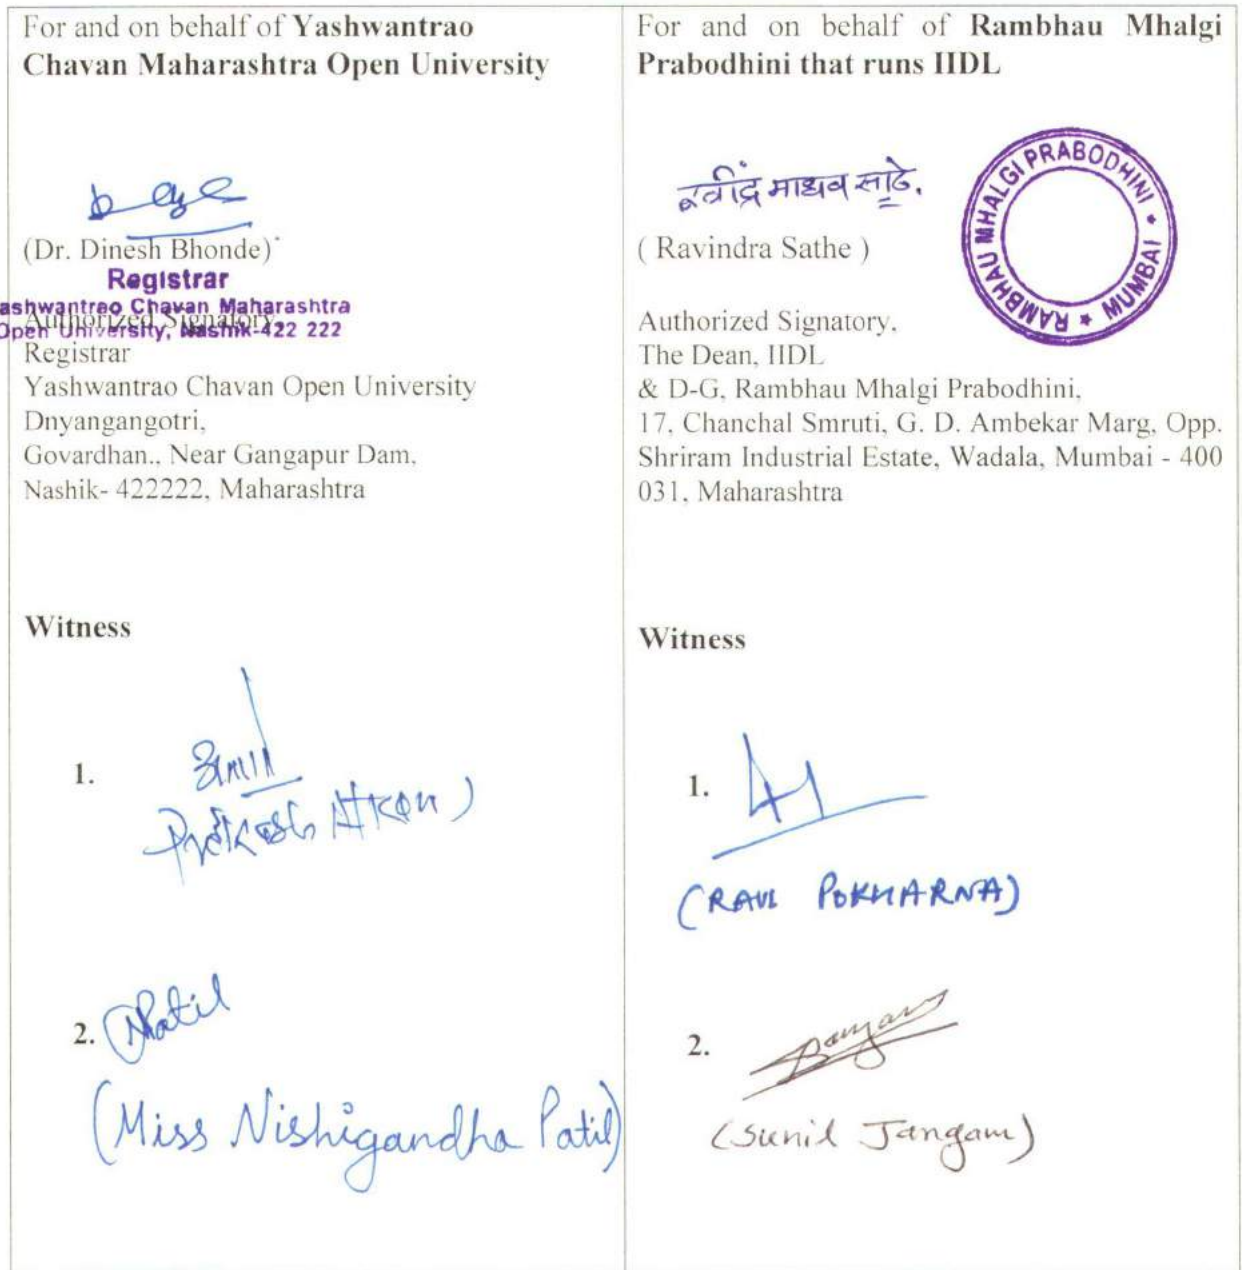 For and on behalf of Yashwantrao
Chavan Maharashtra Open University
(Dr. Dinesh Bhonde)
Registrar
ashwantrao Chavan Maharashtra
Open University, Nashik-422 222
Authorized Signatory,
Registrar
Yashwantrao Chavan Open University
Dnyangangotri,
Govardhan., Near Gangapur Dam,
Nashik- 422222, Maharashtra
Witness
1.
Prakash
2. Patil
(Miss Nishigandha Patil)
For and on behalf of Rambhau Mhalgi
Prabodhini that runs IIDL
रवींद्र माधव साठे.
( Ravindra Sathe )
RAMBHAU MHALGI PRABODHINI * MUMBAI *
Authorized Signatory,
The Dean, IIDL
& D-G, Rambhau Mhalgi Prabodhini,
17, Chanchal Smruti, G. D. Ambekar Marg, Opp.
Shriram Industrial Estate, Wadala, Mumbai - 400
031, Maharashtra
Witness
1.
(RAVI POKHARNA)
2.
(Sunil Jangam)